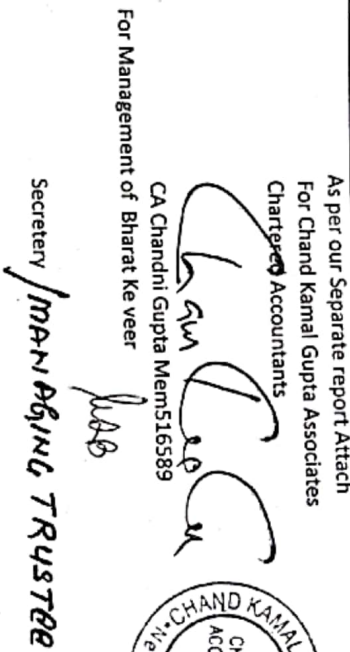 As per our Separate report Attach
For Chand Kamal Gupta Associates
Chartered Accountants
CA Chandni Gupta Mem516589
For Management of Bharat Ke veer
Secretery / MANAGING TRUSTEE
CHAND KAMAL